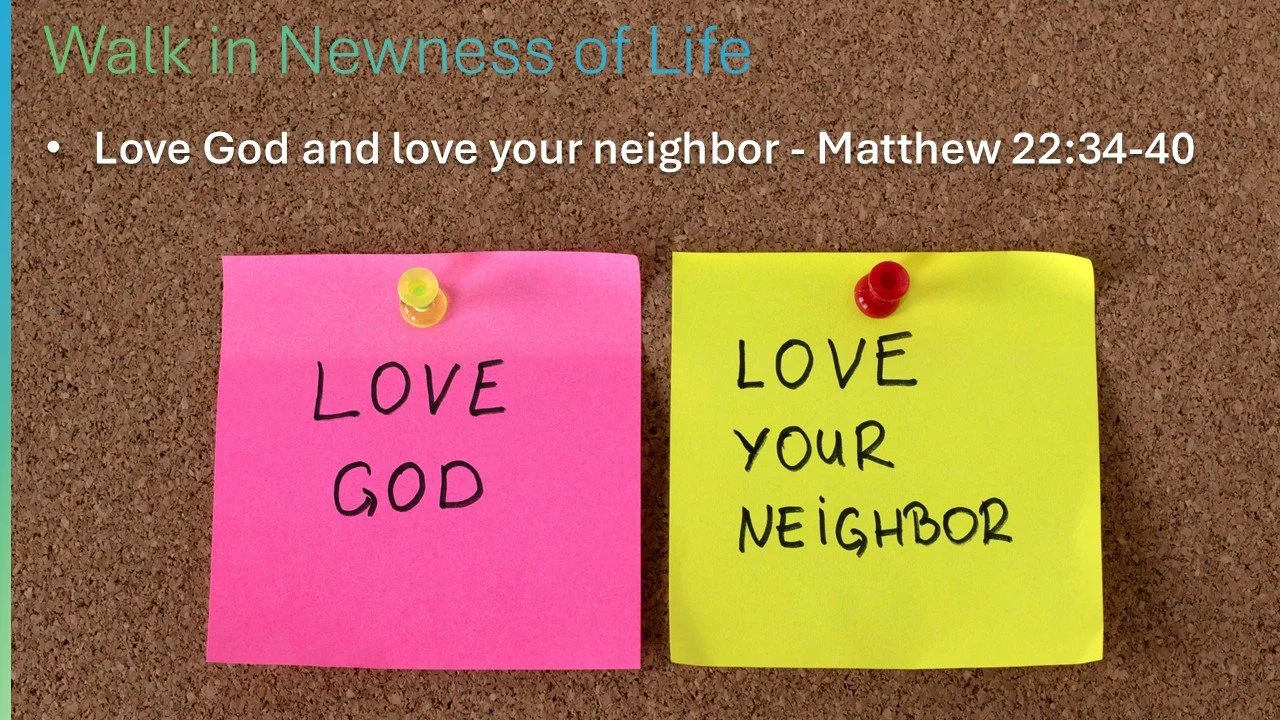 Walk in Newness of Life
• Love God and love your neighbor - Matthew 22:34-40
LOVE
GOD
LOVE
YOUR
NEiGHBOR